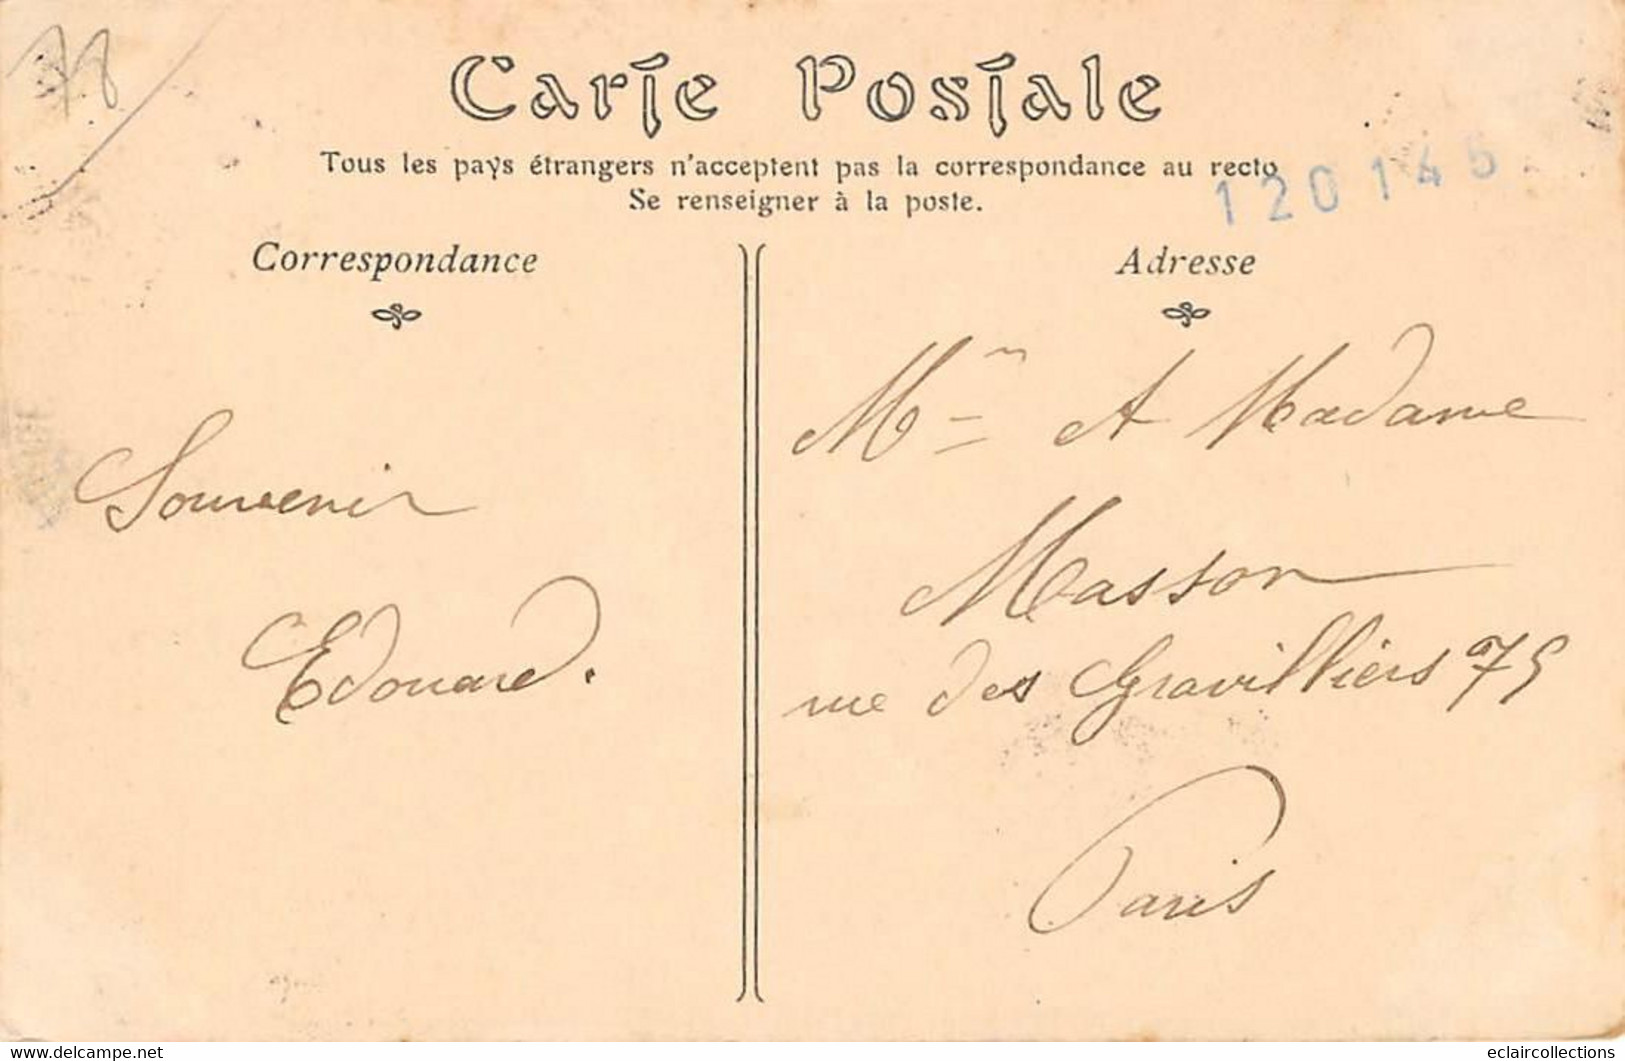 78
Carte Postale
Tous les pays étrangers n'acceptent pas la correspondance au recto
Se renseigner à la poste.
120145
Correspondance
Souvenir
Edouard.
Adresse
A Madame
Masson
rue des Gravilliers 75
Paris
delcampe.net
eclaircollections